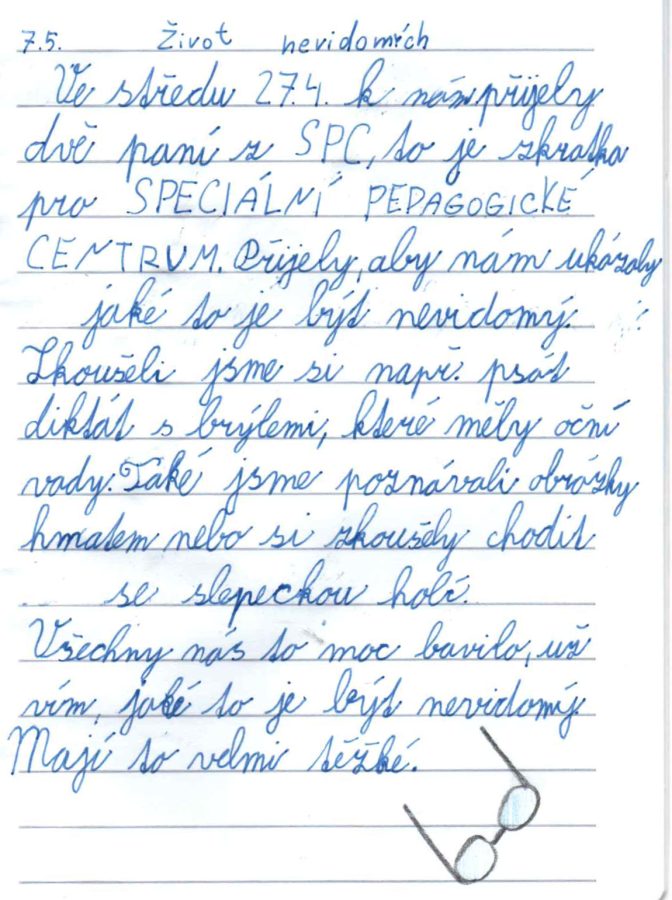 7.5. Život nevidomých
Ve středu 27.4. k nám přijely
dvě paní z SPC, to je zkratka
pro SPECIÁLNÍ PEDAGOGICKÉ
CENTRUM. Přijely, aby nám ukázaly
jaké to je být nevidomý.
Zkoušeli jsme si např. psát
diktát s brýlemi, které měly oční
vady. Také jsme poznávali obrázky
hmatem nebo si zkoušely chodit
se slepeckou holí.
Všechny nás to moc bavilo, už
vím, jaké to je být nevidomý.
Mají to velmi těžké.